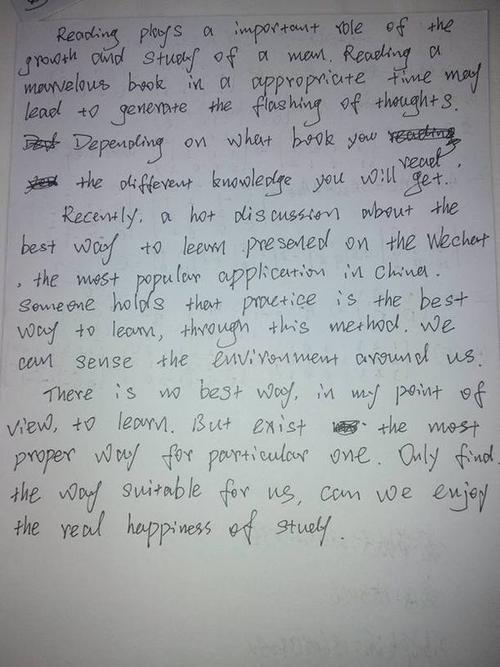 Reading plays a important role of the
growth and study of a man. Reading a
marvelous book in a appropriate time may
lead to generate the flashing of thoughts.
Depending on what book you read,
the different knowledge you will get.
Recently, a hot discussion about the
best way to learn presened on the Wechat
, the most popular application in China.
Someone holds that practice is the best
way to learn, through this method. We
can sense the environment around us.
There is no best way, in my point of
view, to learn. But exist the most
proper way for particular one. Only find
the way suitable for us, can we enjoy
the real happiness of study.